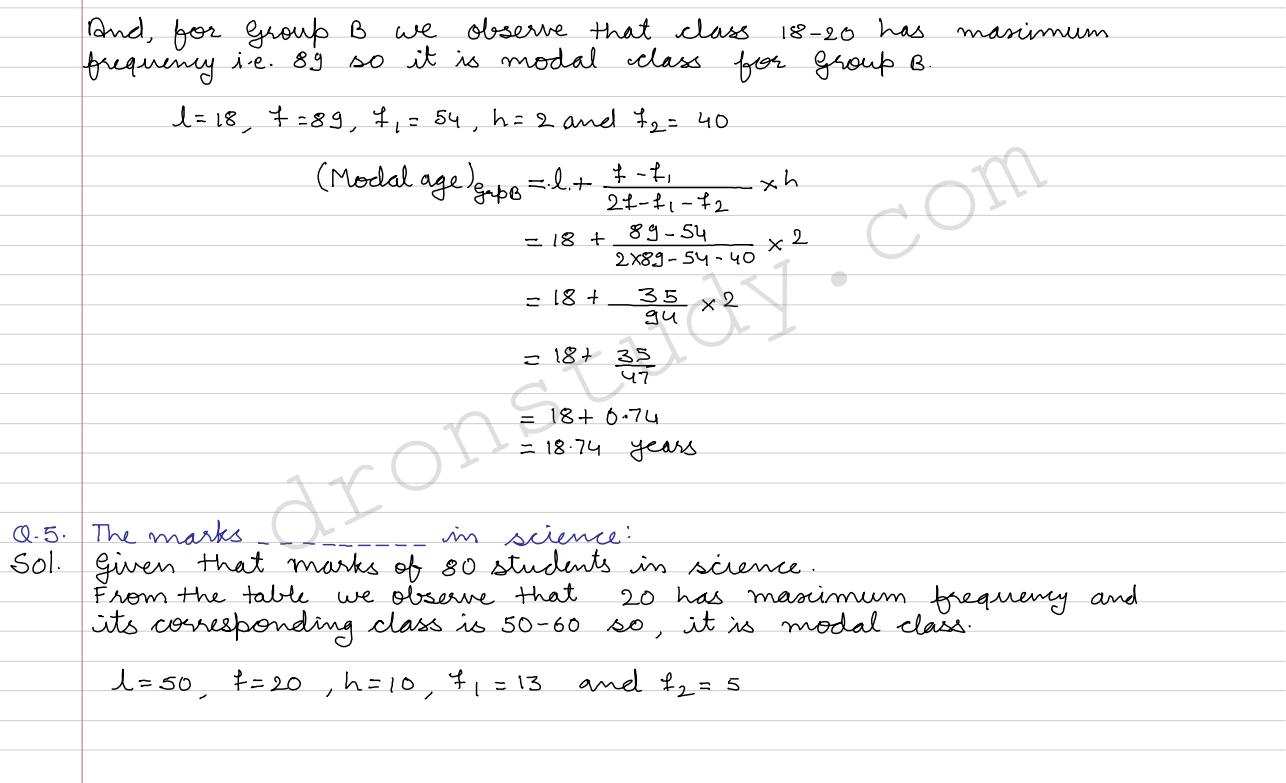 And, for Group B we observe that class 18-20 has maximum
frequency i.e. 89 so it is modal class for Group B.
l=18, f=89, f₁=54, h=2 and f₂= 40
(Modal age)GrpB = l + (f-f₁)/(2f-f₁-f₂) × h
= 18 + (89-54)/(2×89-54-40) × 2
= 18 + 35/94 × 2
= 18+ 35/47
= 18+ 0.74
= 18.74 years
Q.5. The marks _ _ _ _ _ _ _ _ _ in science:
Sol. Given that marks of 80 students in science.
From the table we observe that 20 has maximum frequency and
its corresponding class is 50-60 so, it is modal class.
l=50, f=20, h=10, f₁=13 and f₂= 5
dronstudy.com